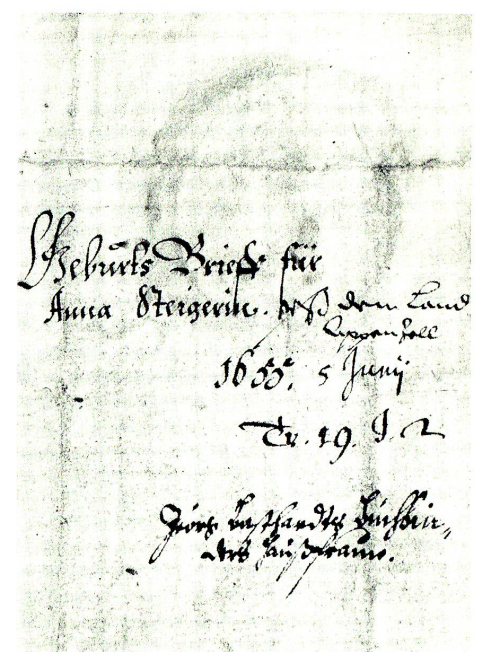 Geburts Brieff für
Anna Steigerin. auß dem Land
Appenzell
1655. 5 Junij
Tr. 19. J. 2
Jörg Buchbin-
ders haußfrauw.